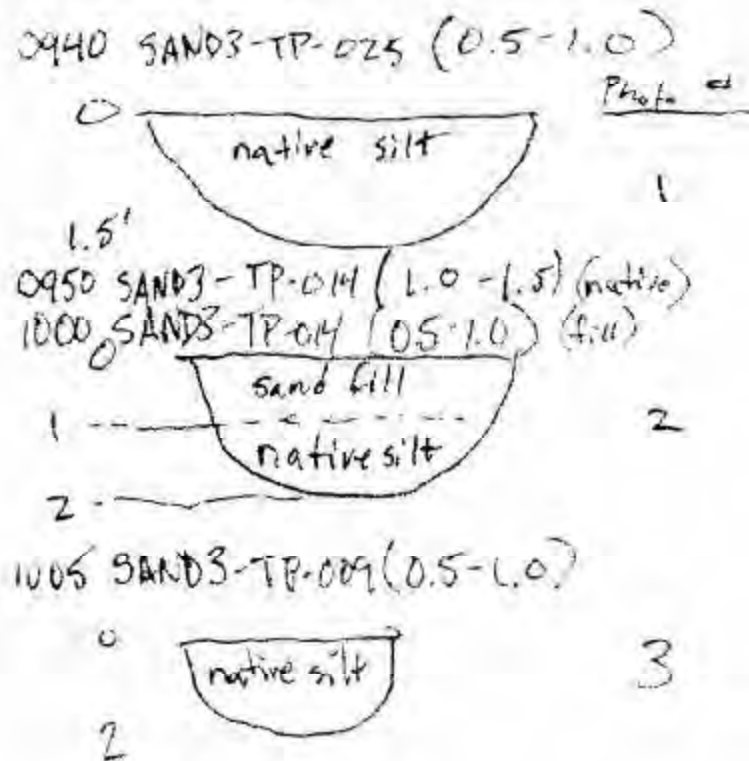 0940 SAND3-TP-025 (0.5-1.0)
Photo #
0
native silt
1
1.5'
0950 SAND3-TP-014 (1.0-1.5) (native)
1000 SAND3-TP-014 (0.5-1.0) (fill)
0
sand fill
1
2
native silt
2
1005 SAND3-TP-009 (0.5-1.0)
0
native silt
3
2